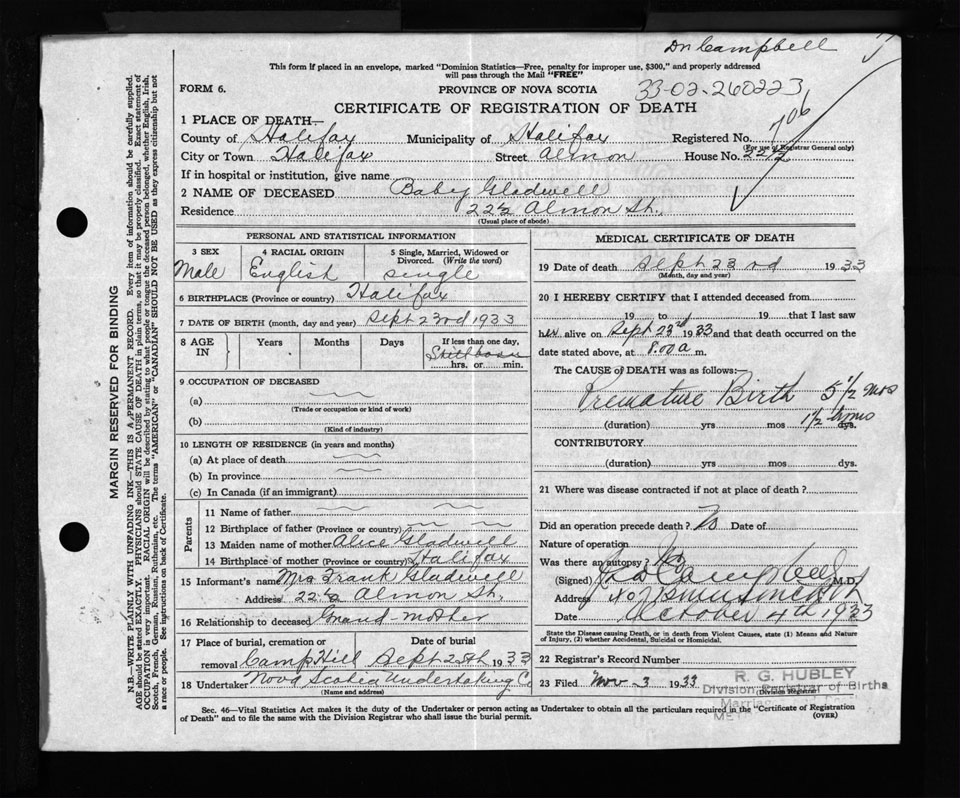 Dr Campbell
This form if placed in an envelope, marked "Dominion Statistics—Free, penalty for improper use, $300," and properly addressed
will pass through the Mail "FREE"
FORM 6.
PROVINCE OF NOVA SCOTIA
33-02-260223
CERTIFICATE OF REGISTRATION OF DEATH
1 PLACE OF DEATH—
706
County of Halifax Municipality of Halifax Registered No.
(For use of Registrar General only)
City or Town Halifax Street Almon House No. 22½
If in hospital or institution, give name
2 NAME OF DECEASED Baby Gladwell
Residence 22½ Almon St.
(Usual place of abode)
PERSONAL AND STATISTICAL INFORMATION
3 SEX
Male
4 RACIAL ORIGIN
English
5 Single, Married, Widowed or
Divorced. (Write the word)
single
6 BIRTHPLACE (Province or country) Halifax
7 DATE OF BIRTH (month, day and year) Sept 23rd 1933
8 AGE
IN
Years
Months
Days
If less than one day,
Stillborn
hrs. or min.
9 OCCUPATION OF DECEASED
(a)
(Trade or occupation or kind of work)
(b)
(Kind of industry)
10 LENGTH OF RESIDENCE (in years and months)
(a) At place of death
(b) In province
(c) In Canada (if an immigrant)
Parents
11 Name of father
12 Birthplace of father (Province or country)
13 Maiden name of mother Alice Gladwell
14 Birthplace of mother (Province or country) Halifax
15 Informant's name Mrs Frank Gladwell
Address 22½ Almon St.
16 Relationship to deceased Grand-mother
17 Place of burial, cremation or Date of burial
removal Camp Hill Sept 25th 1933
18 Undertaker Nova Scotia Undertaking Co
(Name and address)
MEDICAL CERTIFICATE OF DEATH
19 Date of death Sept 23rd 1933
(Month, day and year)
20 I HEREBY CERTIFY that I attended deceased from
19 to 19 that I last saw
her alive on Sept 23rd 1933 and that death occurred on the
date stated above, at 8.00 a m.
The CAUSE of DEATH was as follows:—
Premature Birth 5½ mos
1½ hours
(duration) yrs mos dys.
CONTRIBUTORY
(duration) yrs mos dys.
21 Where was disease contracted if not at place of death?
Did an operation precede death? No Date of
Nature of operation
Was there an autopsy? No
(Signed) Campbell M.D.
Address
Date October 4th 1933
State the Disease causing Death, or in death from Violent Causes, state (1) Means and Nature
of Injury, (2) whether Accidental, Suicidal or Homicidal.
22 Registrar's Record Number
R. G. HUBLEY
23 Filed Nov-3 1933
(Division Registrar)
Division Registrar of Births
Marriag
Sec. 46—Vital Statistics Act makes it the duty of the Undertaker or person acting as Undertaker to obtain all the particulars required in the "Certificate of Registration
of Death" and to file the same with the Division Registrar who shall issue the burial permit.
(OVER)
MARGIN RESERVED FOR BINDING
N.B.—WRITE PLAINLY WITH UNFADING INK—THIS IS A PERMANENT RECORD. Every item of information should be carefully supplied.
AGE should be stated EXACTLY. PHYSICIANS should STATE CAUSE OF DEATH in plain terms, so that it may be properly classified. Exact statement of
OCCUPATION is very important. RACIAL ORIGIN will be described by stating to what people or tongue the deceased person belonged, whether English, Irish,
Scotch, French, German, Russian, Ruthenian, etc. The terms "AMERICAN" or "CANADIAN" SHOULD NOT BE USED as they express citizenship but not
a race or people. See instructions on back of Certificate.